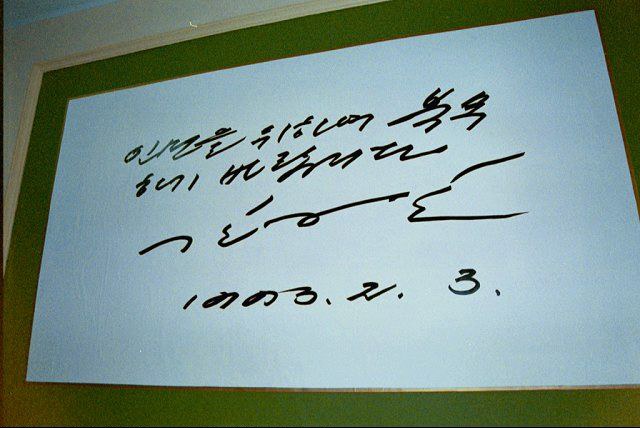 인민을 위하여 복무
하기 바랍니다
김정일
1993. 2. 3.